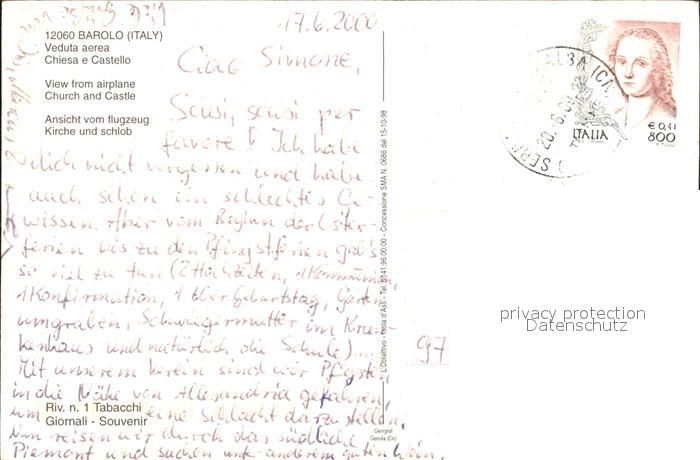 Viele Grüße von
17.6.2000
12060 BAROLO (ITALY)
Veduta aerea
Chiesa e Castello
View from airplane
Church and Castle
Ansicht vom flugzeug
Kirche und schlob
Ciao Simone,
Scusi, scusi per
favore! Ich habe
dich nicht vergessen und habe
auch schon ein schlechtes Ge-
wissen. Aber vom Beginn der Oster-
ferien bis zu den Pfingstferien gab's
so viel zu tun (2 Hochzeiten, 1 Kommunion,
1 Konfirmation, 1 60er Geburtstag, Garten
umgraben, Schwiegermutter im Kran-
kenhaus und natürlich die Schule)....
Mit unserem Verein sind wir Pfgstn
in die Nähe von Allesandria gefahren,
um eine Schlacht darzustellen.
Nun reisen wir durch das südliche
Piemont und suchen unter anderem guten Wein.
Riv. n. 1 Tabacchi
Giornali - Souvenir
L'Obiettivo - Isola d'Asti - Tel. 0141.96.00.00 - Concessione SMA N. 0686 del 15-10-98
Genova (Ge)
ALBA
20.6.00
ITALIA
€ 0,41
800
97
privacy protection
Datenschutz